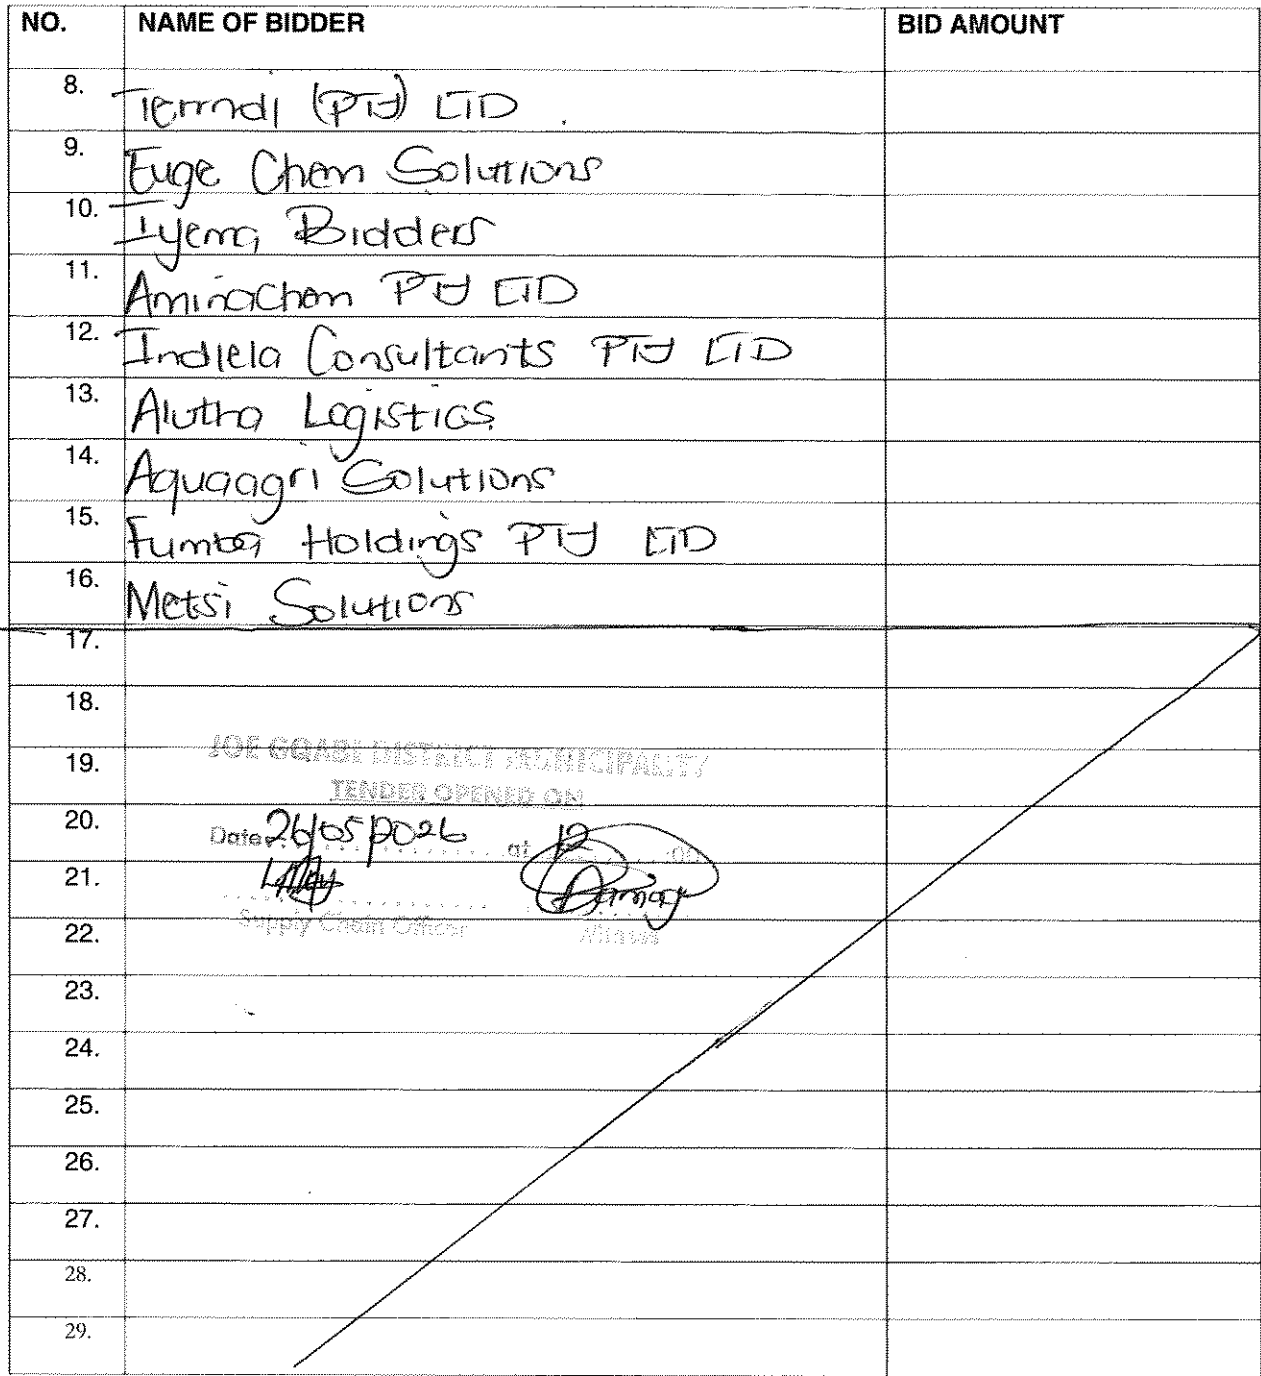 NO. NAME OF BIDDER BID AMOUNT
8. Termdi (PTY) LTD
9. Euge Chem Solutions
10. Iyema Bidders
11. Aminachem PTY LTD
12. Indlela Consultants PTY LTD
13. Alutha Logistics
14. Aquaagri Solutions
15. Fumba Holdings PTY LTD
16. Metsi Solutions
17.
18.
JOE GQABI DISTRICT MUNICIPALITY
19.
TENDER OPENED ON
20. Date: 26/05/2026 at 12 :00
21.
Supply Chain Officer Witness
22.
23.
24.
25.
26.
27.
28.
29.